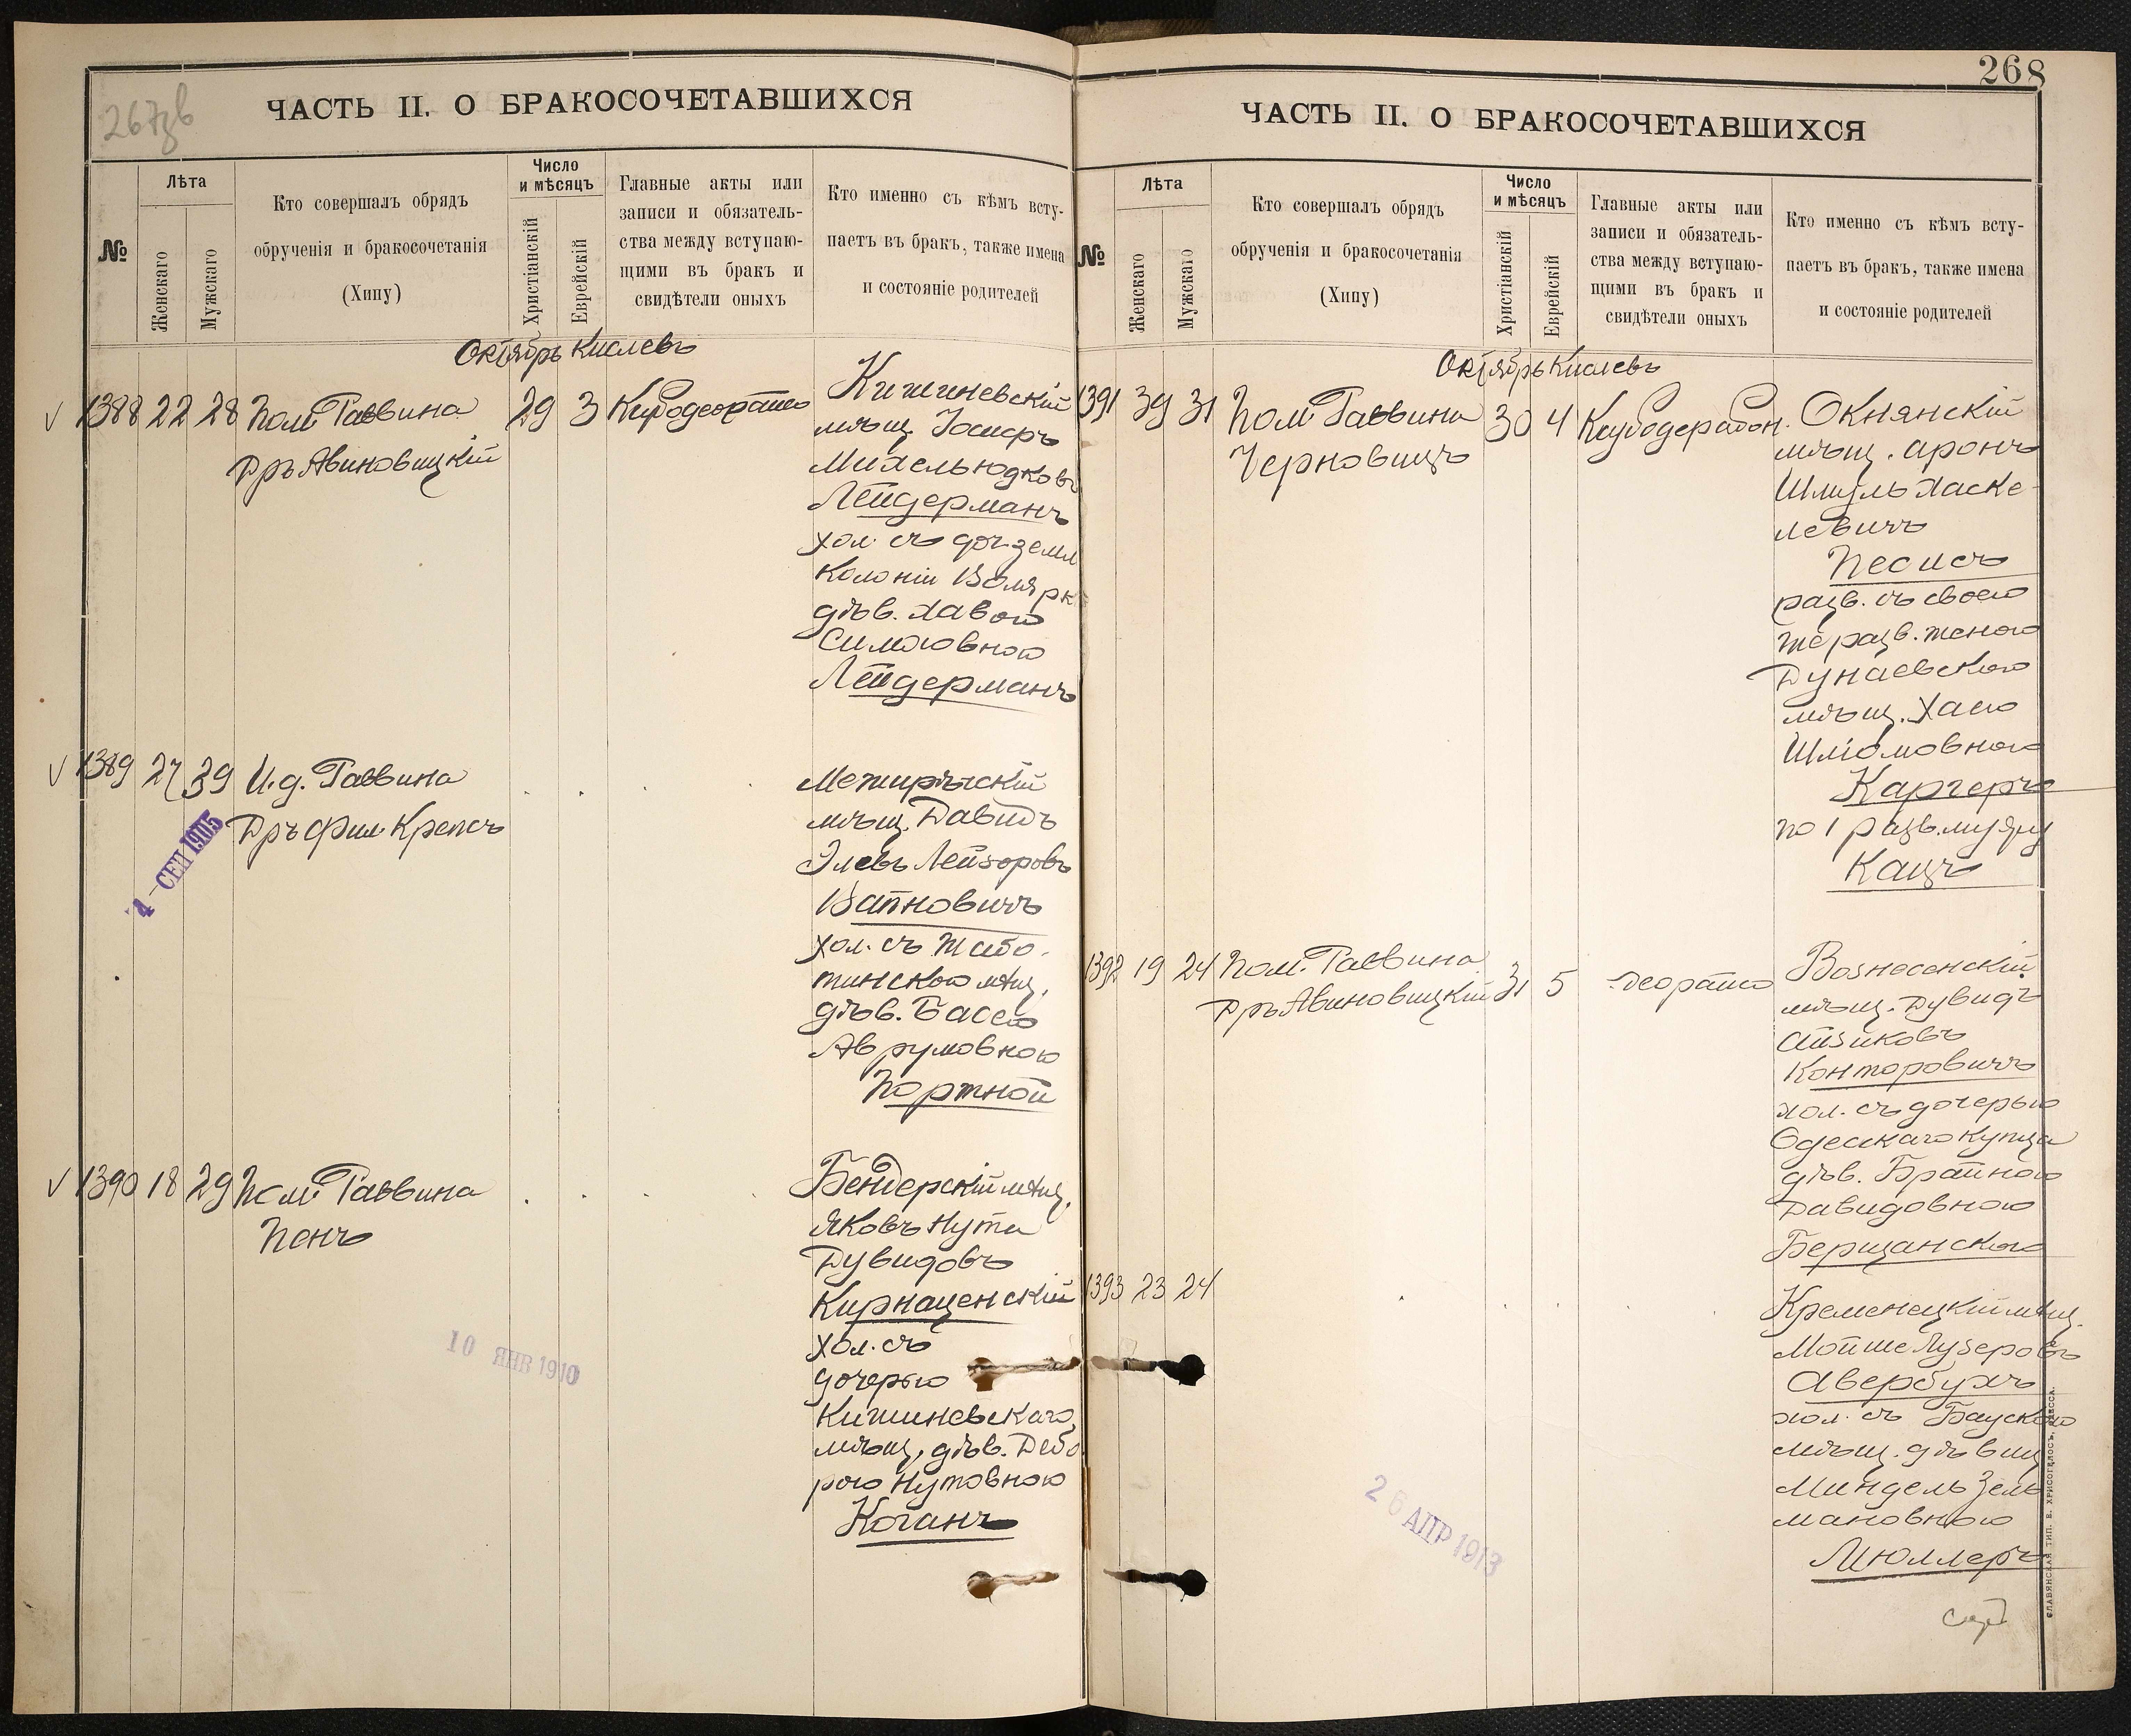 267об
ЧАСТЬ II. О БРАКОСОЧЕТАВШИХСЯ
№
Лѣта
Женскаго
Мужскаго
Кто совершалъ обрядъ
обрученія и бракосочетанія
(Хипу)
Число
и мѣсяцъ
Христіанскій
Еврейскій
Главные акты или
записи и обязатель-
ства между вступаю-
щими въ бракъ и
свидѣтели оныхъ
Кто именно съ кѣмъ всту-
паетъ въ бракъ, также имена
и состояніе родителей
Октябрь Кислевъ
1388 22 28 Пом. Раввина 29 3
Дръ Авиновицкій
Кишиневскій
мѣщ. Іосифъ
Михель Юдковъ
Лейдерманъ
хол. съ доч. земл
колоніи Волярк
дѣв. Хавою
Симоовною
Лейдерманъ
1389 27 39 И.д. Раввина
Дръ Фил. Крепсъ
4 СЕП 1905
Межирѣчскій
мѣщ. Давидъ
Элевъ Лейзоровъ
Вапновичъ
хол. съ Жабо-
тинскою мѣщ.
дѣв. Басею
Аврумовною
Портной
1390 18 29 Пом. Раввина
Пенъ
Бендерскій мѣщ.
Яковъ Нута
Дувидовъ
Кирнаценскій
хол. съ
дочерью
Кишиневскаго
мѣщ. дѣв. Дебо
рою Нутовною
Коганъ
10 ЯНВ 1910
268
ЧАСТЬ II. О БРАКОСОЧЕТАВШИХСЯ
№
Лѣта
Женскаго
Мужскаго
Кто совершалъ обрядъ
обрученія и бракосочетанія
(Хипу)
Число
и мѣсяцъ
Христіанскій
Еврейскій
Главные акты или
записи и обязатель-
ства между вступаю-
щими въ бракъ и
свидѣтели оныхъ
Кто именно съ кѣмъ всту-
паетъ въ бракъ, также имена
и состояніе родителей
Октябрь Кислевъ
1391 39 31 Пом. Раввина 30 4
Черновицъ
Окнянскій
мѣщ. Аронъ
Шмуль Хаске-
левичъ
Песисъ
разв. съ своею
же разв. женою
Дунаевскою
мѣщ. Хаею
Шліомовною
Каргеръ
по 1 разв. мужу
Кацъ
1392 19 24 Пом. Раввина 31 5
Дръ Авиновицкій
Вознесенскій
мѣщ. Дувидъ
Айзиковъ
Конторовичъ
хол. съ дочерью
Одесскаго купца
дѣв. Брайною
Давидовною
Берщанскою
1393 23 24
Кременецкій мѣщ.
Мойше Лузеровъ
Авербухъ
хол. съ Баускою
мѣщ. дѣвиц
Миндель Зель
мановною
Мюллеръ
26 АПР 1913
СЛАВЯНСКАЯ ТИП. Е. ХРИСОГЕЛОСЪ, ОДЕССА.